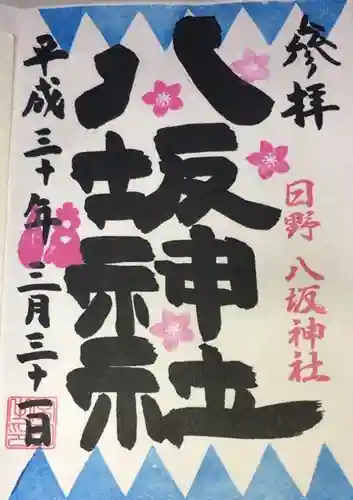 参拝
八坂神社
日野 八坂神社
平成三十年三月三十一日